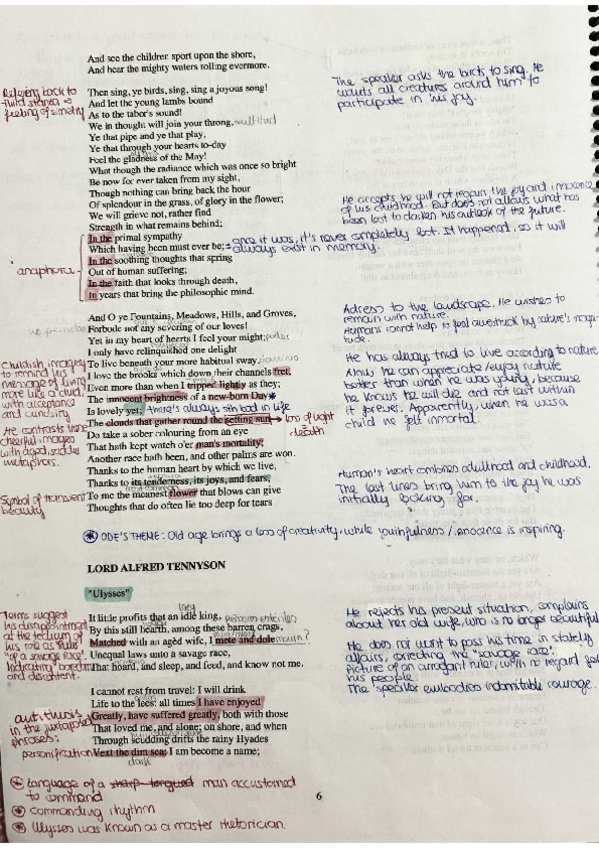 And see the children sport upon the shore,
And hear the mighty waters rolling evermore.
Then sing, ye birds, sing, sing a joyous song!
And let the young lambs bound
As to the tabor's sound!
We in thought will join your throng, multitud
Ye that pipe and ye that play,
Ye that through your hearts to-day
Feel the gladness of the May!
What though the radiance which was once so bright
Be now for ever taken from my sight,
Though nothing can bring back the hour
Of splendour in the grass, of glory in the flower;
We will grieve not, rather find
Strength in what remains behind;
In the primal sympathy
Which having been must ever be;
In the soothing thoughts that spring
Out of human suffering;
In the faith that looks through death,
In years that bring the philosophic mind.
Refering back to
third stanza →
feeling of simetry
The speaker asks the birds to sing. He
wants all creatures around him to
participate in his joy.
He accepts he will not regain the joy and innocence
of his childhood. But does not allows what has
been lost to darken his outlook of the future.
once it was, it's never completely lost. It happened, so it will
always exist in memory.
anaphora
And O ye Fountains, Meadows, Hills, and Groves,
Forbode not any severing of our loves!
Yet in my heart of hearts I feel your might;
I only have relinquished one delight
To live beneath your more habitual sway.
I love the brooks which down their channels fret,
Even more than when I tripped lightly as they;
The innocent brightness of a new-born Day*
Is lovely yet; there's always sth bad in life
The clouds that gather round the setting sun → loss of light
= death
Do take a sober colouring from an eye
That hath kept watch o'er man's mortality;
Another race hath been, and other palms are won.
Thanks to the human heart by which we live,
Thanks to its tenderness, its joys, and fears,
To me the meanest flower that blows can give
Thoughts that do often lie too deep for tears
Childish imagery
to remind his
message of living
more like a child,
with acceptance
and curiosity
He contrasts these
cheerful images
with aged, sadder
metaphors.
Symbol of transient
beauty
Adress to the landscape. He wishes to
remain with nature.
Humans cannot help to feel awestruck by nature's magni-
tude.
He has always tried to love according to nature
Now he can appreciate/enjoy nature
better than when he was young, because
he knows he will die and not last within
it forever. Apparently, when he was a
child he felt inmortal.
Human's heart combines adulthood and childhood.
The last lines bring him to the joy he was
initially looking for.
* ODE'S THEME: Old age brings a loss of creativity, while youthfulness/innocence is inspiring.
LORD ALFRED TENNYSON
"Ulysses"
lazy
It little profits that an idle king,
By this still hearth, among these barren crags,
Matched with an aged wife, I mete and dole mourn?
Unequal laws unto a savage race,
That hoard, and sleep, and feed, and know not me.
I cannot rest from travel: I will drink
Life to the lees: all times I have enjoyed
Greatly, have suffered greatly, both with those
That loved me, and alone; on shore, and when
Through scudding drifts the rainy Hyades
Vext the dim sea: I am become a name;
dark
Terms suggest
his disappointment
at the tedium of
his role as ruler
"of a savage race",
indicating boredom
and discontent.
antithesis
in the juxtaposed
phrases.
personification
He rejects his present situation, complains
about her old wife, who is no longer beautiful
He does not want to pass his time in stately
affairs, correcting the "savage race".
Picture of an arrogant ruler, with no regard for
his people.
The speaker embodies indomitable courage.
* Language of a sharp-tongued man accustomed
to command
* Commanding rhythm
* Ulysses was known as a master rhetorician.
6